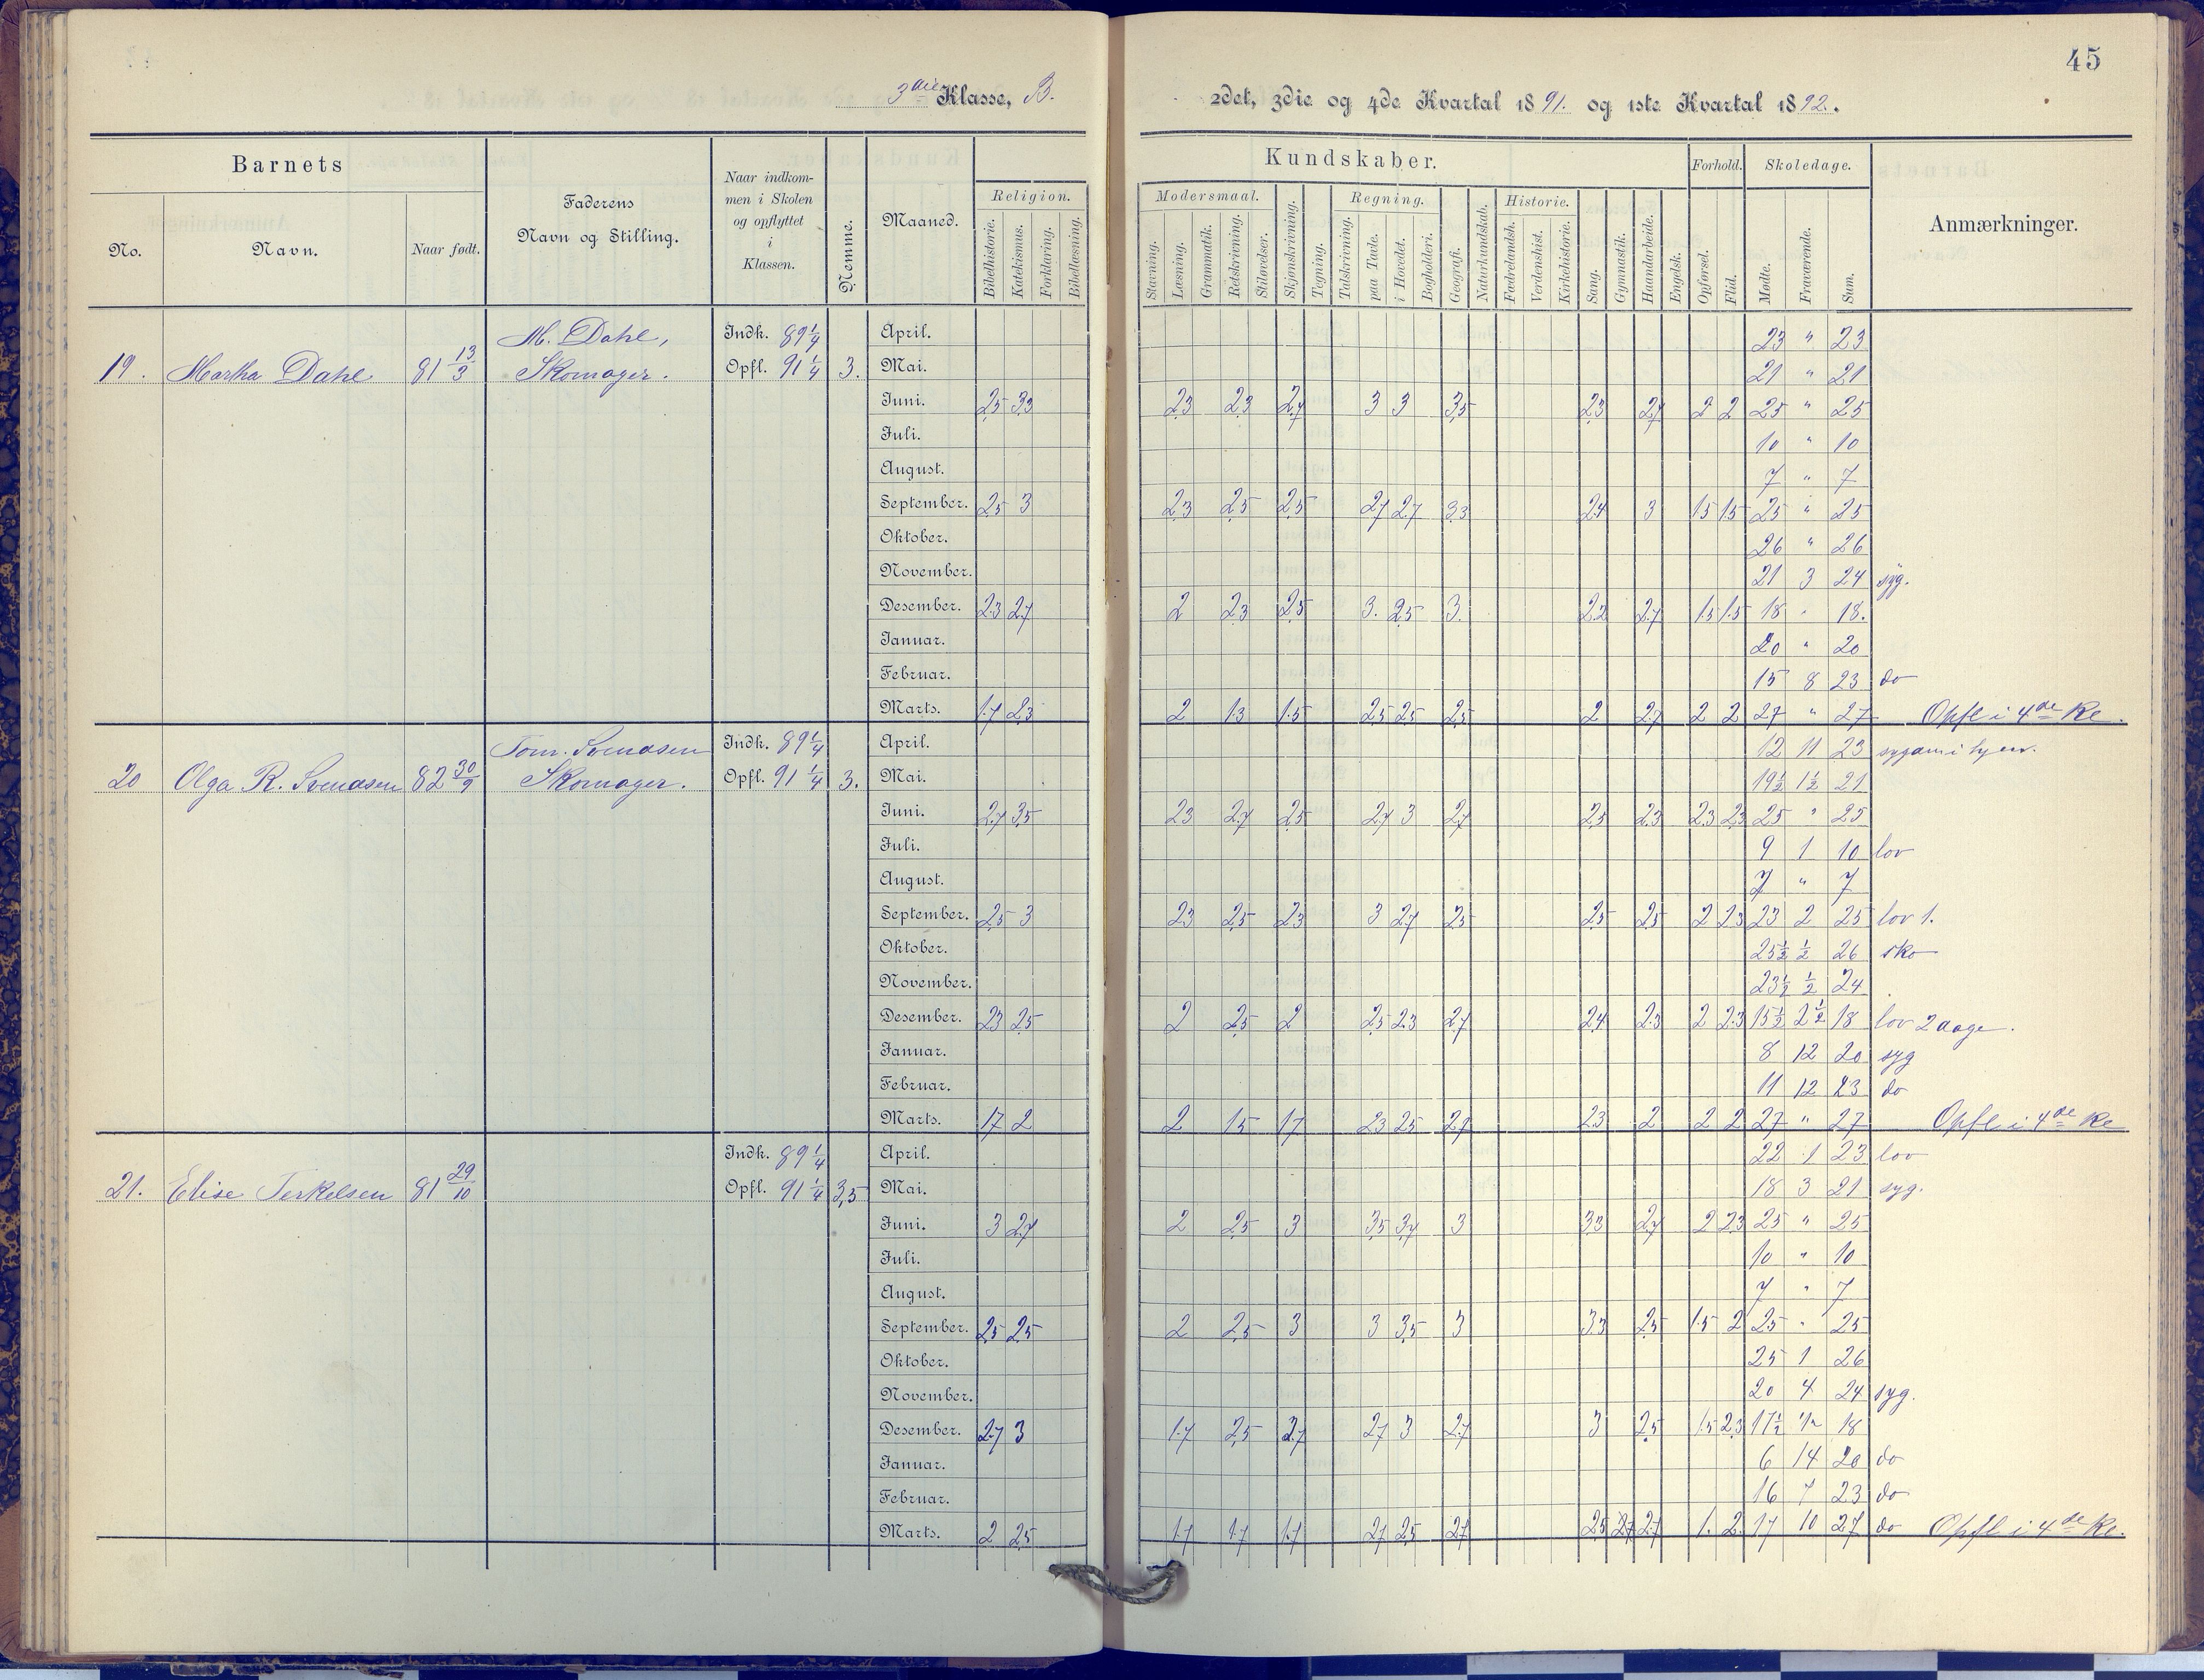 45
3die Klasse, B. 2det, 3die og 4de Kvartal 1891. og 1ste Kvartal 1892.
Barnets
No. Navn. Naar født.
Faderens
Navn og Stilling.
Naar indkom-
men i Skolen
og opflyttet
i
Klassen.
Nemme.
Maaned.
Religion.
Bibelhistorie. Katekismus. Forklaring. Bibellæsning.
Kundskaber.
Modersmaal. Regning. Historie.
Stavning. Læsning. Grammatik. Retskrivning. Stiløvelser. Skjønskrivning. Tegning. Talskrivning. paa Tavle. i Hovedet. Bogholderi. Geografi. Naturkundskab. Fædrelandsh. Verdenshist. Kirkehistorie. Sang. Gymnastik. Haandarbeide. Engelsk.
Forhold. Skoledage.
Opførsel. Flid. Mødte. Fraværende. Sum.
Anmærkninger.
19. Martha Dahl 81 13/3 M. Dahl, Skomager. Indk. 89 1/4 Opfl. 91 1/4 3.
April. 23 " 23
Mai. 21 " 21
Juni. 2,5 3,3 2,3 2,3 2,7 3 3 3,5 2,3 2,7 2 2 25 " 25
Juli. 10 " 10
August. 7 " 7
September. 2,5 3 2,3 2,5 2,5 2,7 2,7 3,3 2,4 3 1,5 1,5 25 " 25
Oktober. 26 " 26
November. 21 3 24 syg.
Desember. 2,3 2,7 2 2,3 2,5 3. 2,5 3. 2,2 2,7 1,5 1,5 18 " 18.
Januar. 20 " 20
Februar. 15 8 23 do
Marts. 1,7 2,3 2 1,3 1,5 2,5 2,5 2,5 2 2,7 2 2 27 " 27 Opfl i 4de Kl.
20 Olga R. Svendsen 82 30/9 Tom. Svendsen Skomager. Indk. 89 1/4 Opfl. 91 1/4 3.
April. 12 11 23 sygdom i hjem.
Mai. 19 1/2 1 1/2 21
Juni. 2,7 3,5 2,3 2,7 2,5 2,7 3 2,7 2,5 2,3 2,3 2,3 25 " 25
Juli. 9 1 10 lov
August. 7 " 7
September. 2,5 3 2,3 2,5 2,3 3 2,7 2,5 2,5 2,5 2 2,3 23 2 25 lov 1.
Oktober. 25 1/2 1/2 26 sko
November. 23 1/2 1/2 24
Desember. 2,3 2,5 2 2,5 2 2,5 2,3 2,7 2,4 2,3 2 2,3 15 1/2 2 1/2 18 lov 2 dage.
Januar. 8 12 20 syg
Februar. 11 12 23 do
Marts. 1,7 2 2 1,5 1,7 2,3 2,5 2,7 2,3 2 2 2 27 " 27 Opfl i 4de Kl
21. Elise Terkelsen 81 29/10 Indk. 89 1/4 Opfl. 91 1/4 3,5
April. 22 1 23 lov
Mai. 18 3 21 syg.
Juni. 3 2,7 2 2,5 3 3,5 3,7 3 3,3 2,7 2 2,3 25 " 25
Juli. 10 " 10
August. 7 " 7
September. 2,5 2,5 2 2,5 3 3 3,5 3 3,3 2,5 1,5 2 25 " 25
Oktober. 25 1 26
November. 20 4 24 syg.
Desember. 2,7 3 1,7 2,5 2,7 2,7 3 2,7 3 2,5 1,5 2,3 17 1/2 1/2 18
Januar. 6 14 20 do
Februar. 16 7 23 do
Marts. 2 2,5 1,7 1,7 1,7 2,7 2,5 2,7 2,5 2,7 2,7 1. 2. 17 10 27 do Opfl i 4de Kl.